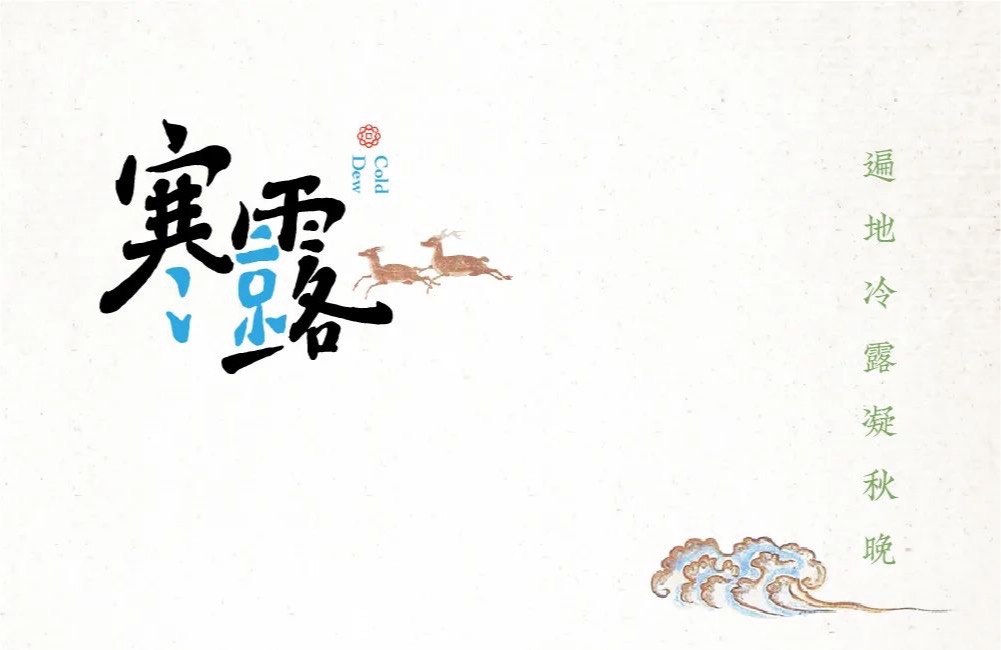 寒露
Cold
Dew
遍地冷露凝秋晚